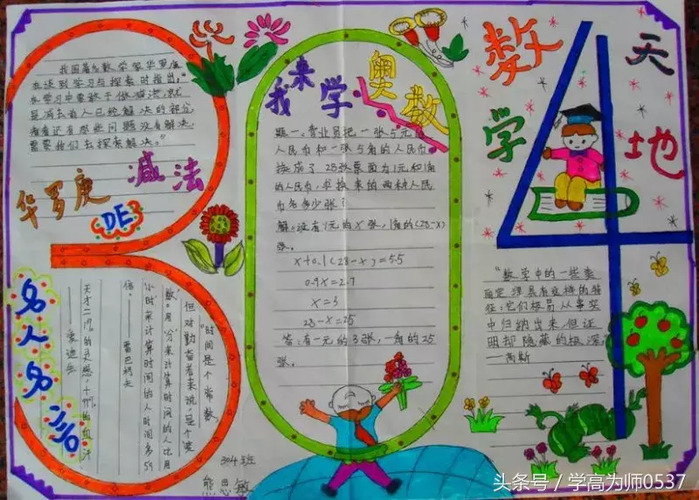 我国著名数学家华罗庚
在谈到学习与探索时指出：“
在学习中要敢于做减法，就
是减去前人已经解决的部分，
看看还有那些问题没有解决，
需要我们去探索解决。”
华罗庚
DE
减法
我来学奥数
题一、营业员把一张5元的
人民币和一张5角的人民币
换成了28张票面为1元和1角
的人民币，求换来的两种人民
币各多少张？
解：设有1元的x张，1角的(28-x)
张。
x+0.1(28-x)=5.5
0.9x=2.7
x=3
28-x=25
答：有一元的3张，一角的25
张。
数学天地
“数学中的一些美
丽定理具有这样的特
性：它们极易从事实
中归纳出来，但证
明却隐藏的极深。”
—高斯
名人名言
“时间是个常数，
但对勤奋者来说，是个‘变
数’。用‘分’来计算时间的人比用
‘小时’来计算时间的人时间多59
倍。
——雷巴柯夫
天才=1%的灵感+99%的血汗
——爱迪生
304班
熊思敏
头条号 / 学高为师0537